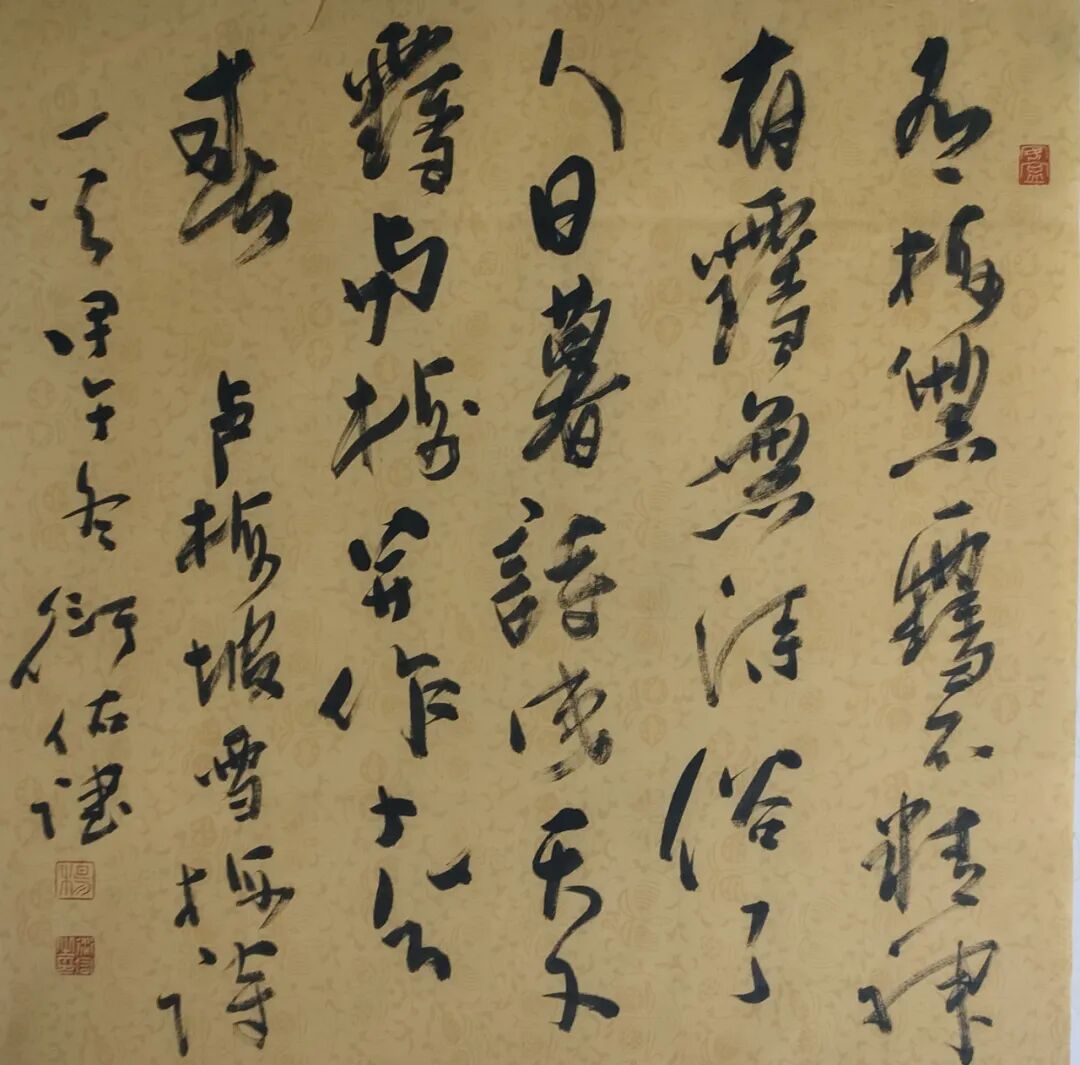 有梅無雪不精神
有雪無詩俗了
人日暮詩成天又
雪與梅并作十分
春 卢梅坡雪梅诗
一首甲午冬佑